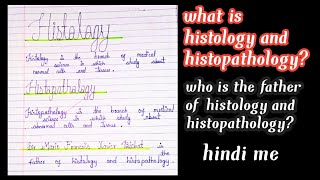 Histology
Histology is the branch of medical
science in which study about
normal cells and tissue.
Histopathology
Histopathology is the branch of medical
science in which study about
abnormal cells and tissue.
Sir Marie Francois Xavier Bichat is the
father of histology and histopathology.
what is
histology and
histopathology?
who is the father
of histology and
histopathology?
hindi me